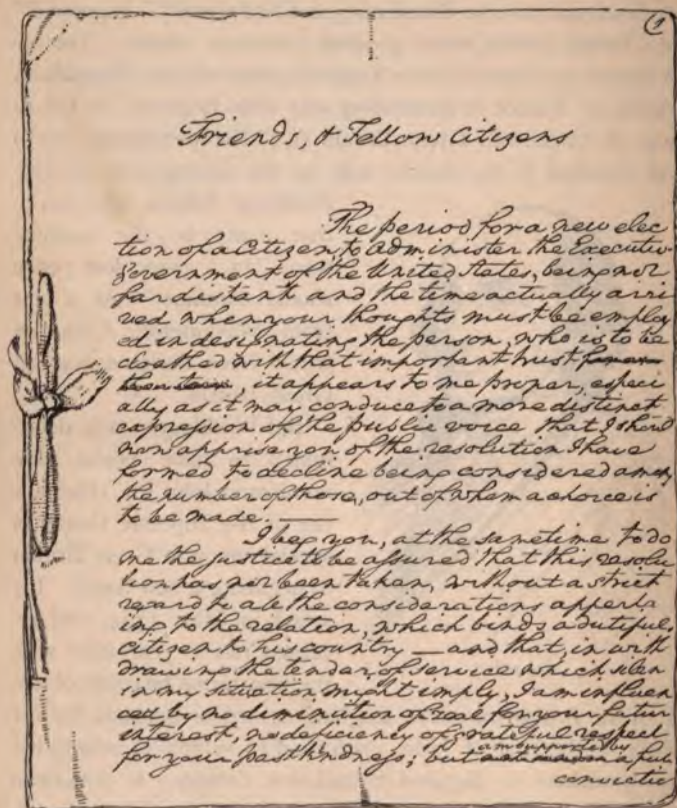 1
Friends, & Fellow Citizens
The period for a new elec
tion of a Citizen, to administer the Executive
Government of the United States, being not
far distant and the time actually arri
ved when your thoughts must be employ
ed in designating the person, who is to be
cloathed with that important trust
, it appears to me proper, especi
ally as it may conduce to a more distinct
expression of the public voice that I should
now apprise you of the resolution I have
formed to decline being considered among
the number of those, out of whom a choice is
to be made. —
I beg you, at the sametime to do
me the justice to be assured that this resolu
tion has not been taken, without a strict
regard to all the considerations apperta
ing to the relation, which binds a dutiful
Citizen to his country — and that, in with
drawing the tender of service which silen
in my situation might imply, I am influen
ced by no diminution of zeal for your futur
interest, no deficiency of grateful respect
for your past kindness; but am supported by a full
convictio